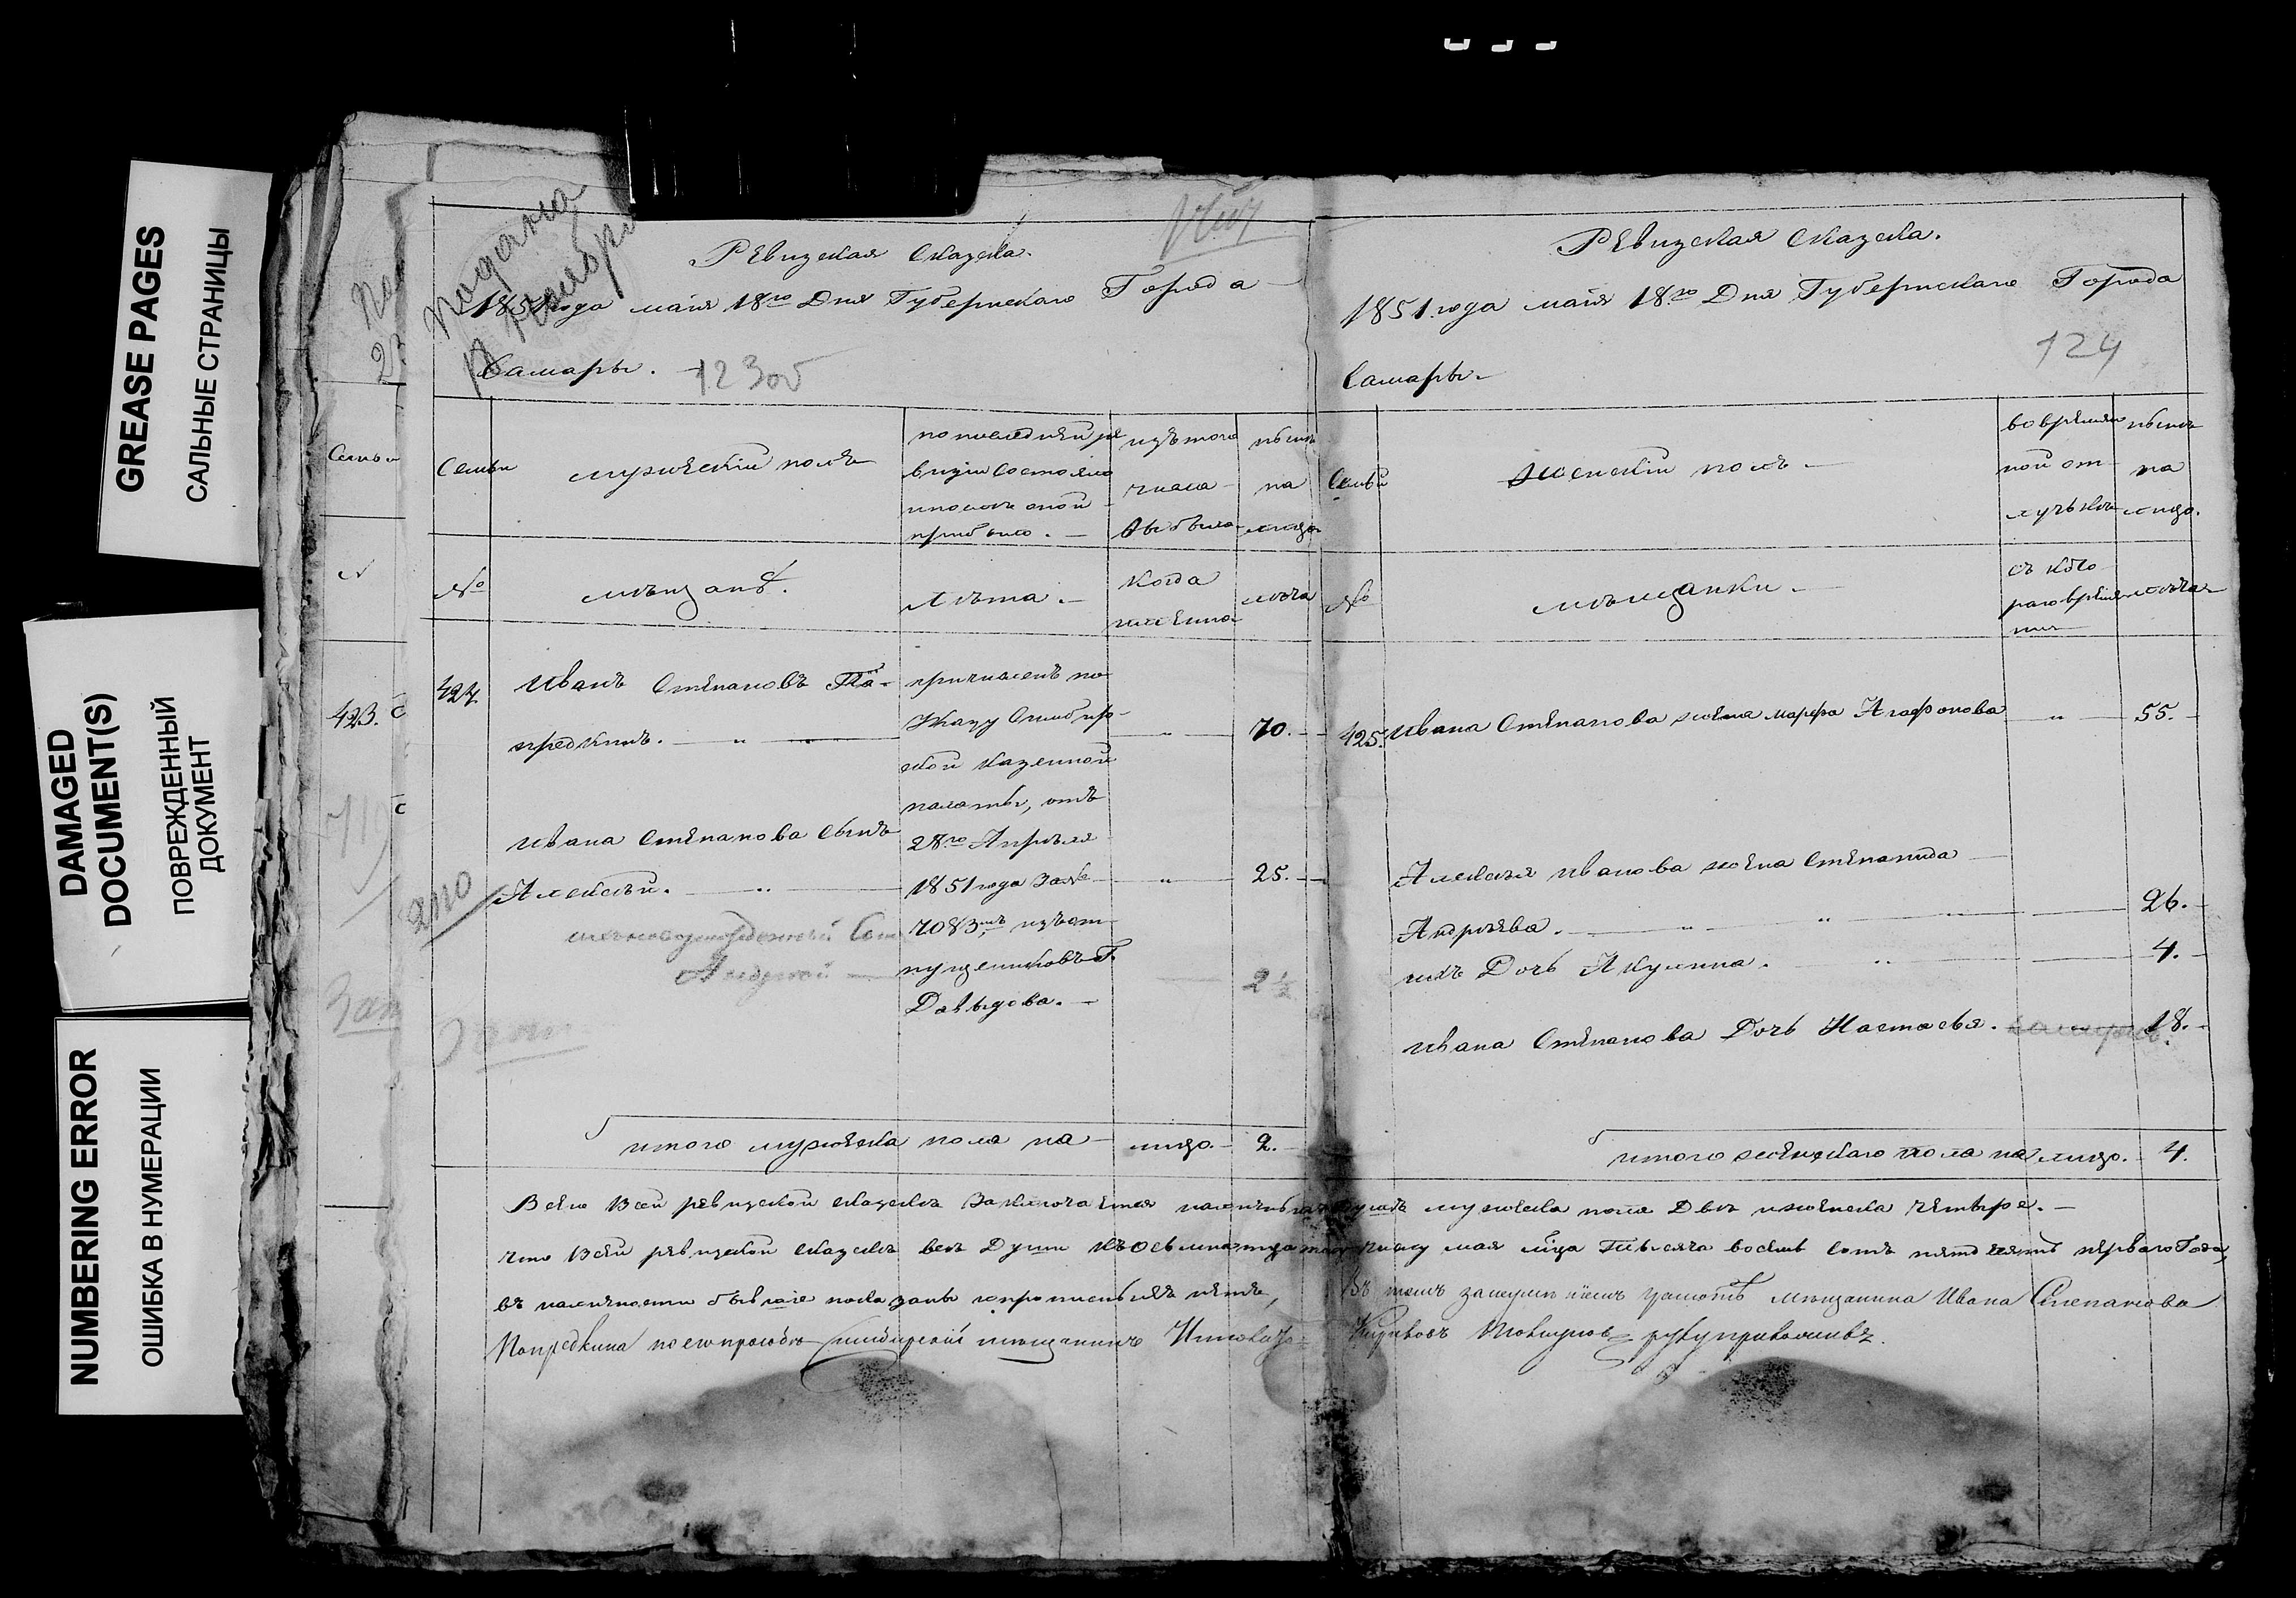 GREASE PAGES
САЛЬНЫЕ СТРАНИЦЫ
DAMAGED
DOCUMENT(S)
ПОВРЕЖДЕННЫЙ
ДОКУМЕНТ
NUMBERING ERROR
ОШИБКА В НУМЕРАЦИИ
Семьи
№
423.
Подана
Ревизская Сказка.
1851 года маія 18го Дня Губернскаго Города
Самары.
123 об
Семьи
мужескій полъ
по последней ре
визіи состояло
и после оной
прибыло.
изъ того
числа
выбыло
ныне
на
лицо
№
мѣщанѣ.
Лѣта.
когда
имянно
лѣта
424
Иванъ Степановъ По-
предкинъ.
причисленъ по
Указу Симбир-
ской Казенной
палаты, отъ
28го Апрѣля
1851 года за №
7083мъ, изъ от-
пущенниковъ Г.
Давыдова.
70.
Ивана Степанова Сынъ
Алексѣй.
25.
2 1/2
итого мужеска пола на лицо. 2.
Ревизская Сказка.
1851 года маія 18го Дня Губернскаго Города
Самары.
124
Семьи
Женскій полъ
во времян
ной от
лучькѣ
ныне
на
лицо.
№
мѣщанки.
съ кото
раго время
ни
лѣта
425.
Ивана Степанова жена Марфа Агафонова
55.
Алексѣя Иванова жена Степанида
Андрѣева.
26.
ихъ Дочь Акулина.
4.
Ивана Степанова Дочь Настасья.
18.
итого женскаго пола на лицо. 4.
Всего в сей ревизской сказкѣ заключается наличныхъ душъ мужеска пола две и женска четыре.
что в сей ревизской сказкѣ все Души къ осьмнатцатому числу мая м͠ца тысяча восемь сотъ пятдесятъ перваго Года,
въ наличности бывшіе показаны и прописныхъ нѣтъ, Въ томъ за неумѣніемъ грамотѣ мѣщанина Ивана Степанова
Попредкина по его прозьбѣ Симбирскій мещанинъ руку приложилъ.